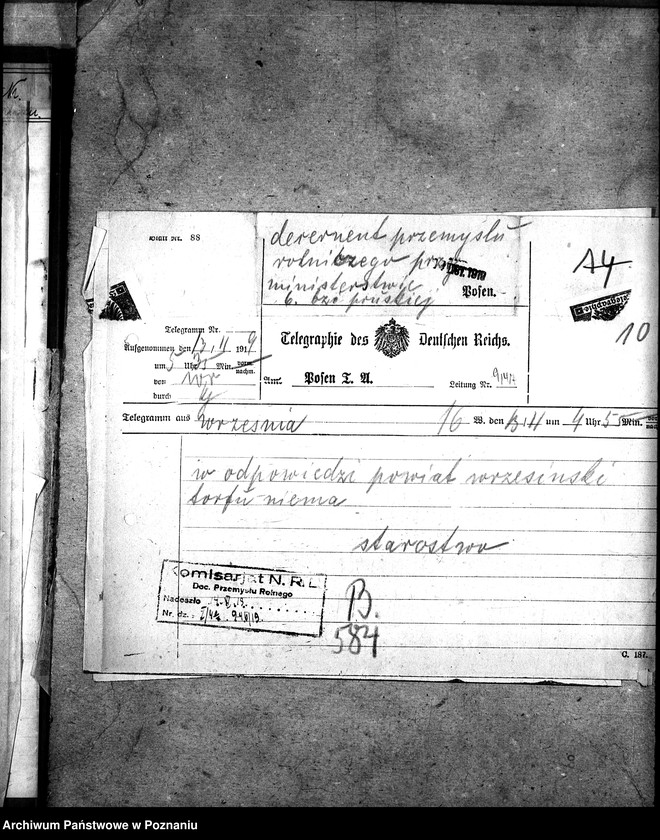 Blatt Nr. 88
derernent przemysłu
rolniczego przy
ministerstwie
b. dzo pruskiej
Posen.
A4
10
Telegramm Nr.
Aufgenommen den 12/11 1919
um 5 Uhr 35 Min. vorm. nachm.
von wr
durch
Telegraphie des Deutschen Reichs.
Amt Posen T. A.
Leitung Nr.
Telegramm aus Września 16 W. den um 4 Uhr 55 Min.
w odpowiedzi powiat wrzesinski
torfu niema
starostwo
Komisarjat N. R. L.
Dec. Przemysłu Rolnego
Nadeszło
Nr. dz.:
B.
584
C. 187.
Archiwum Państwowe w Poznaniu